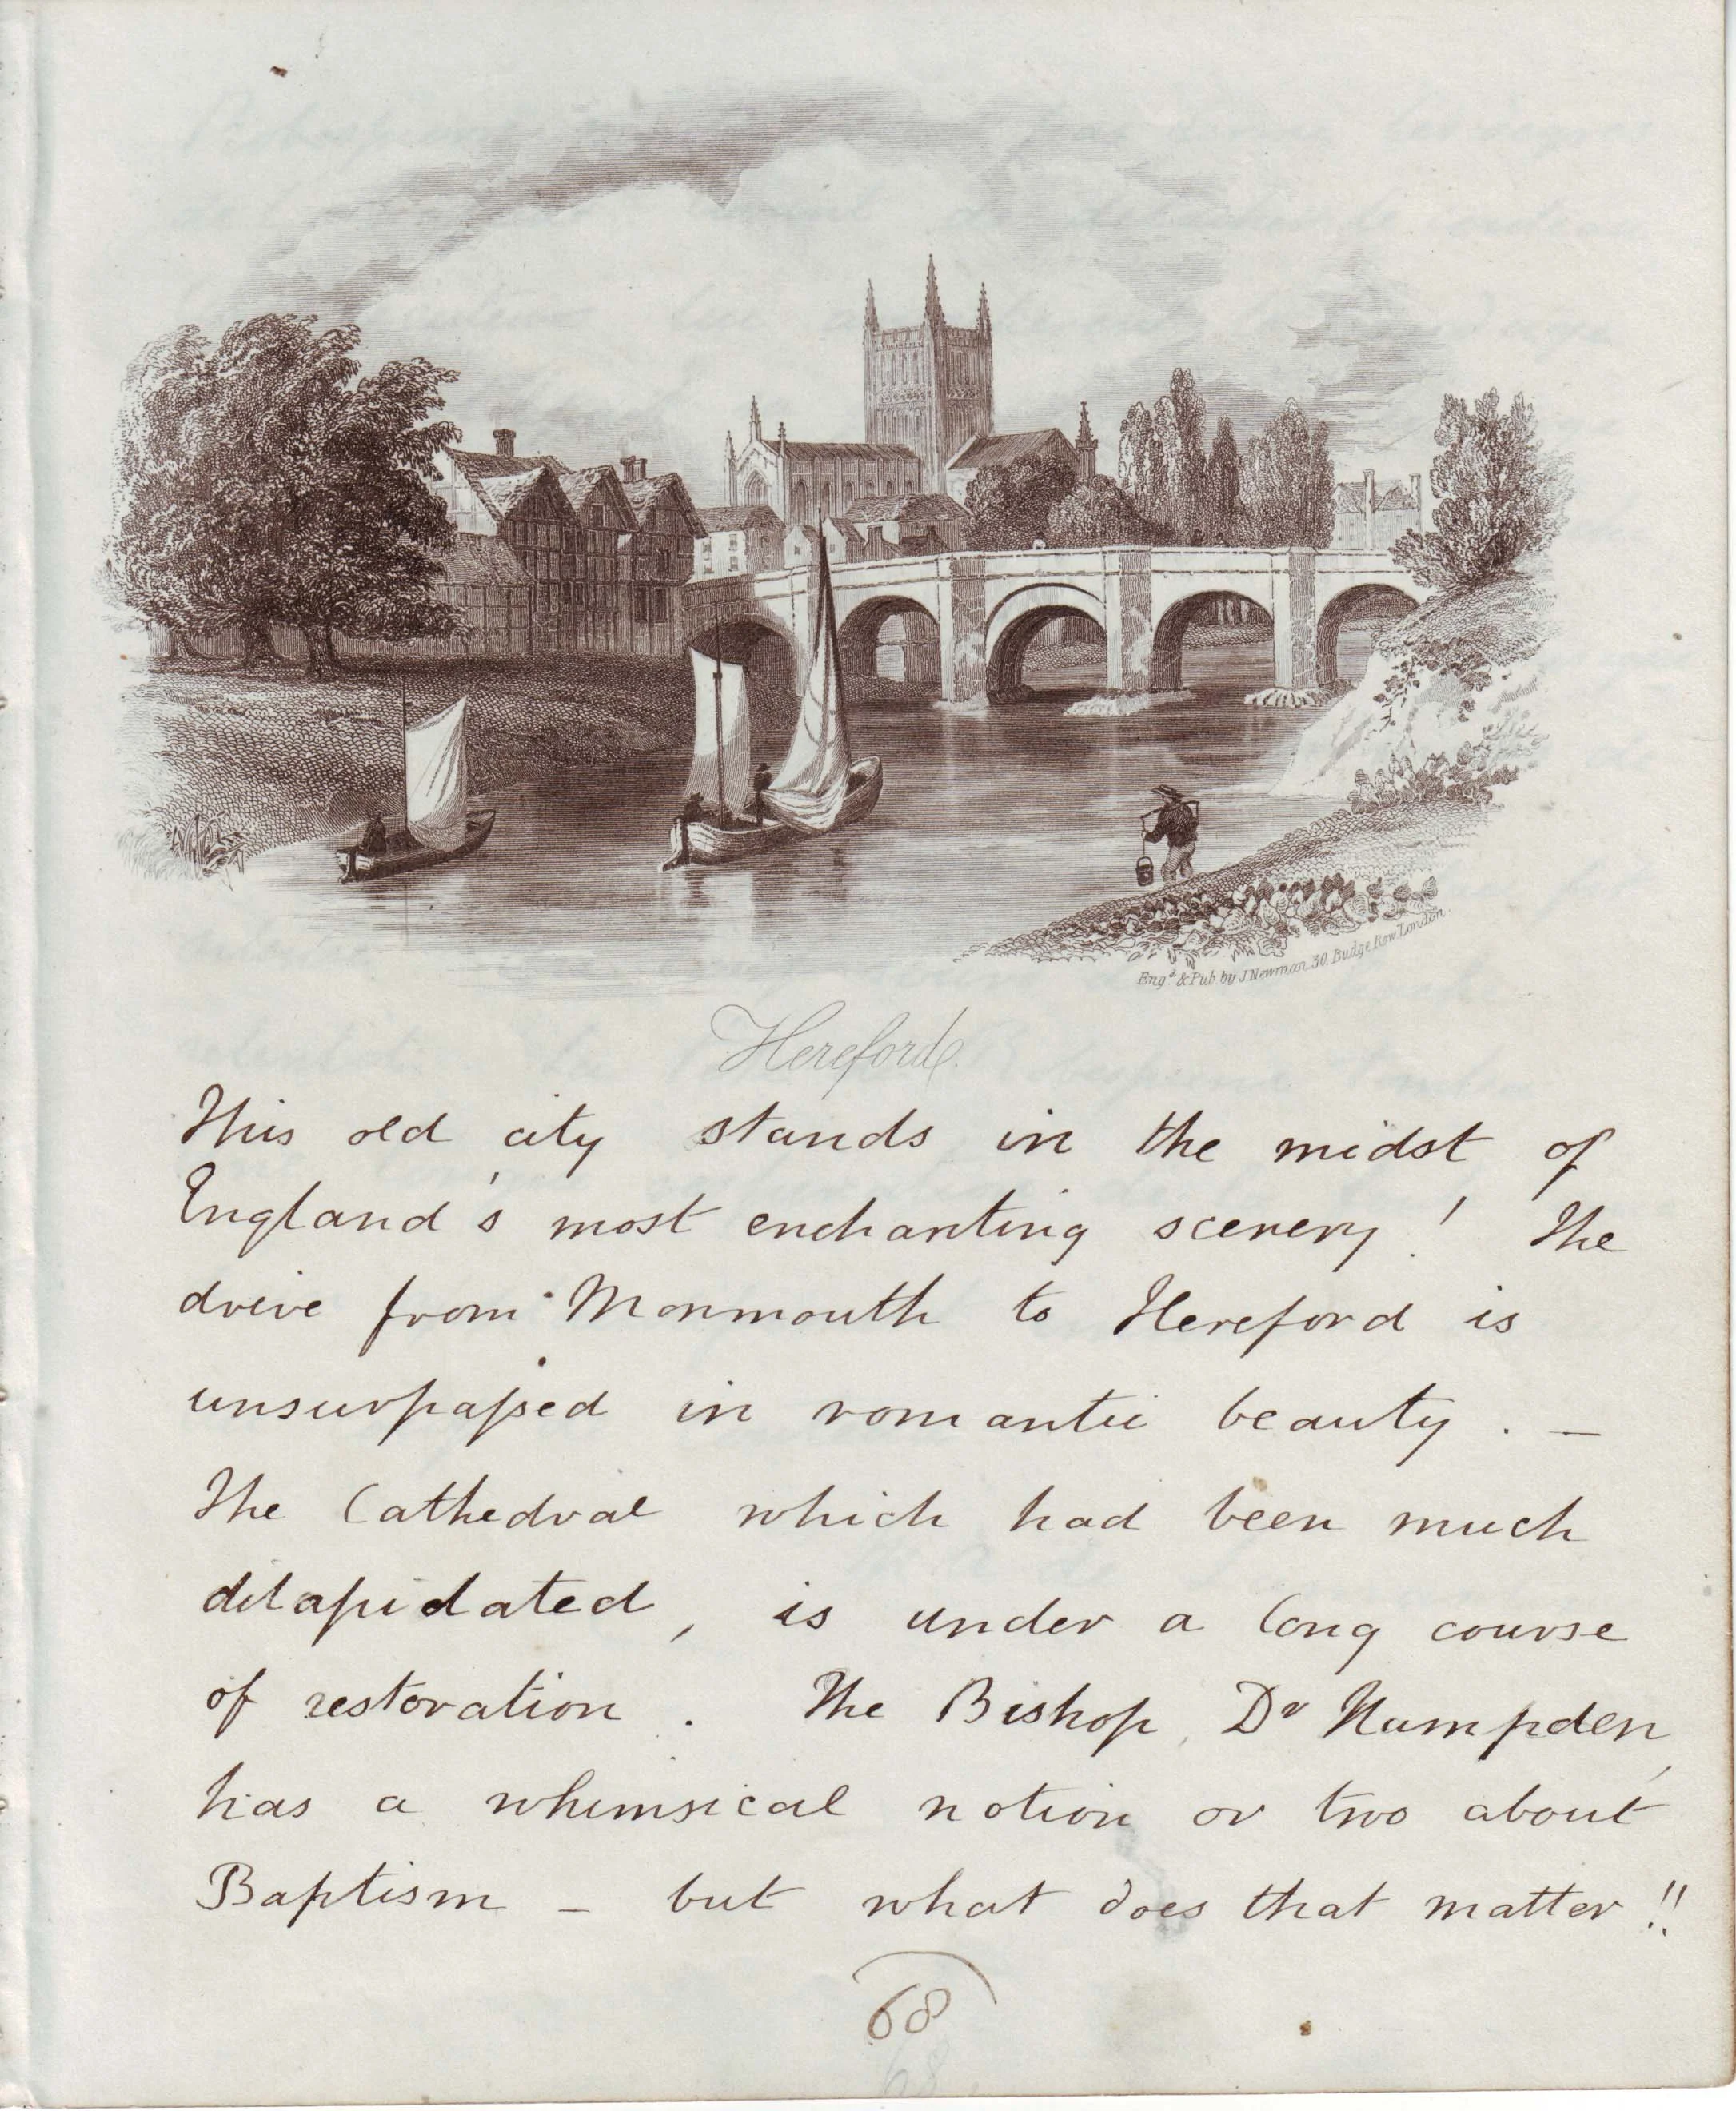 Engd & Pub. by J. Newman, 30, Budge Row, London.
Hereford.
This old city stands in the midst of
England's most enchanting scenery! The
drive from Monmouth to Hereford is
unsurpaſsed in romantic beauty. —
The Cathedral which had been much
dilapidated, is under a long course
of restoration. The Bishop, Dr Hampden,
has a whimsical notion or two about
Baptism — but what does that matter!!
68
68